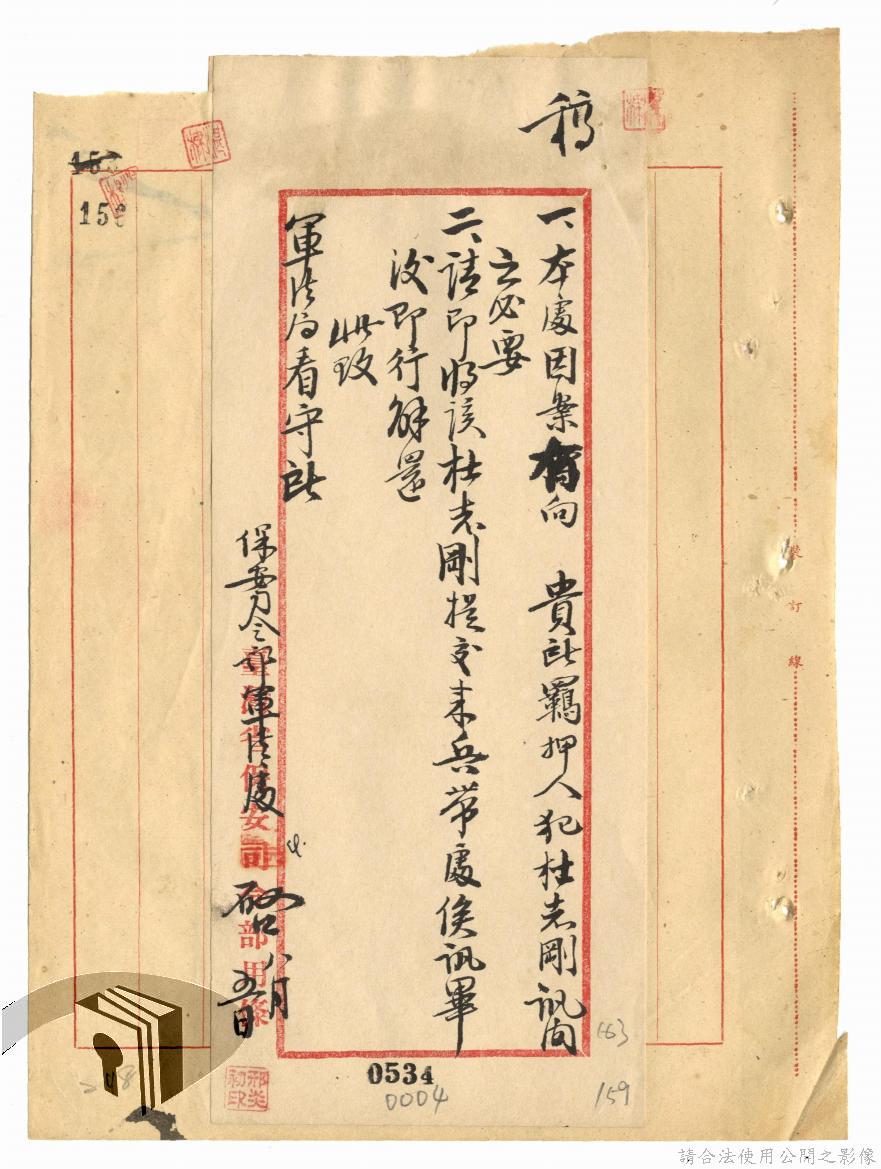 稿
一、本處因案有向　貴所羈押人犯杜志剛訊問
之必要
二、請即將該杜志剛提交來兵帶處俟訊畢
後即行解還
此致
軍法局看守所
保安司令部軍法處 啓 八月
五日
臺灣省保安司令部用條
邢炎初印
裝訂線
153
15
163
159
0534
0004
請合法使用公開之影像